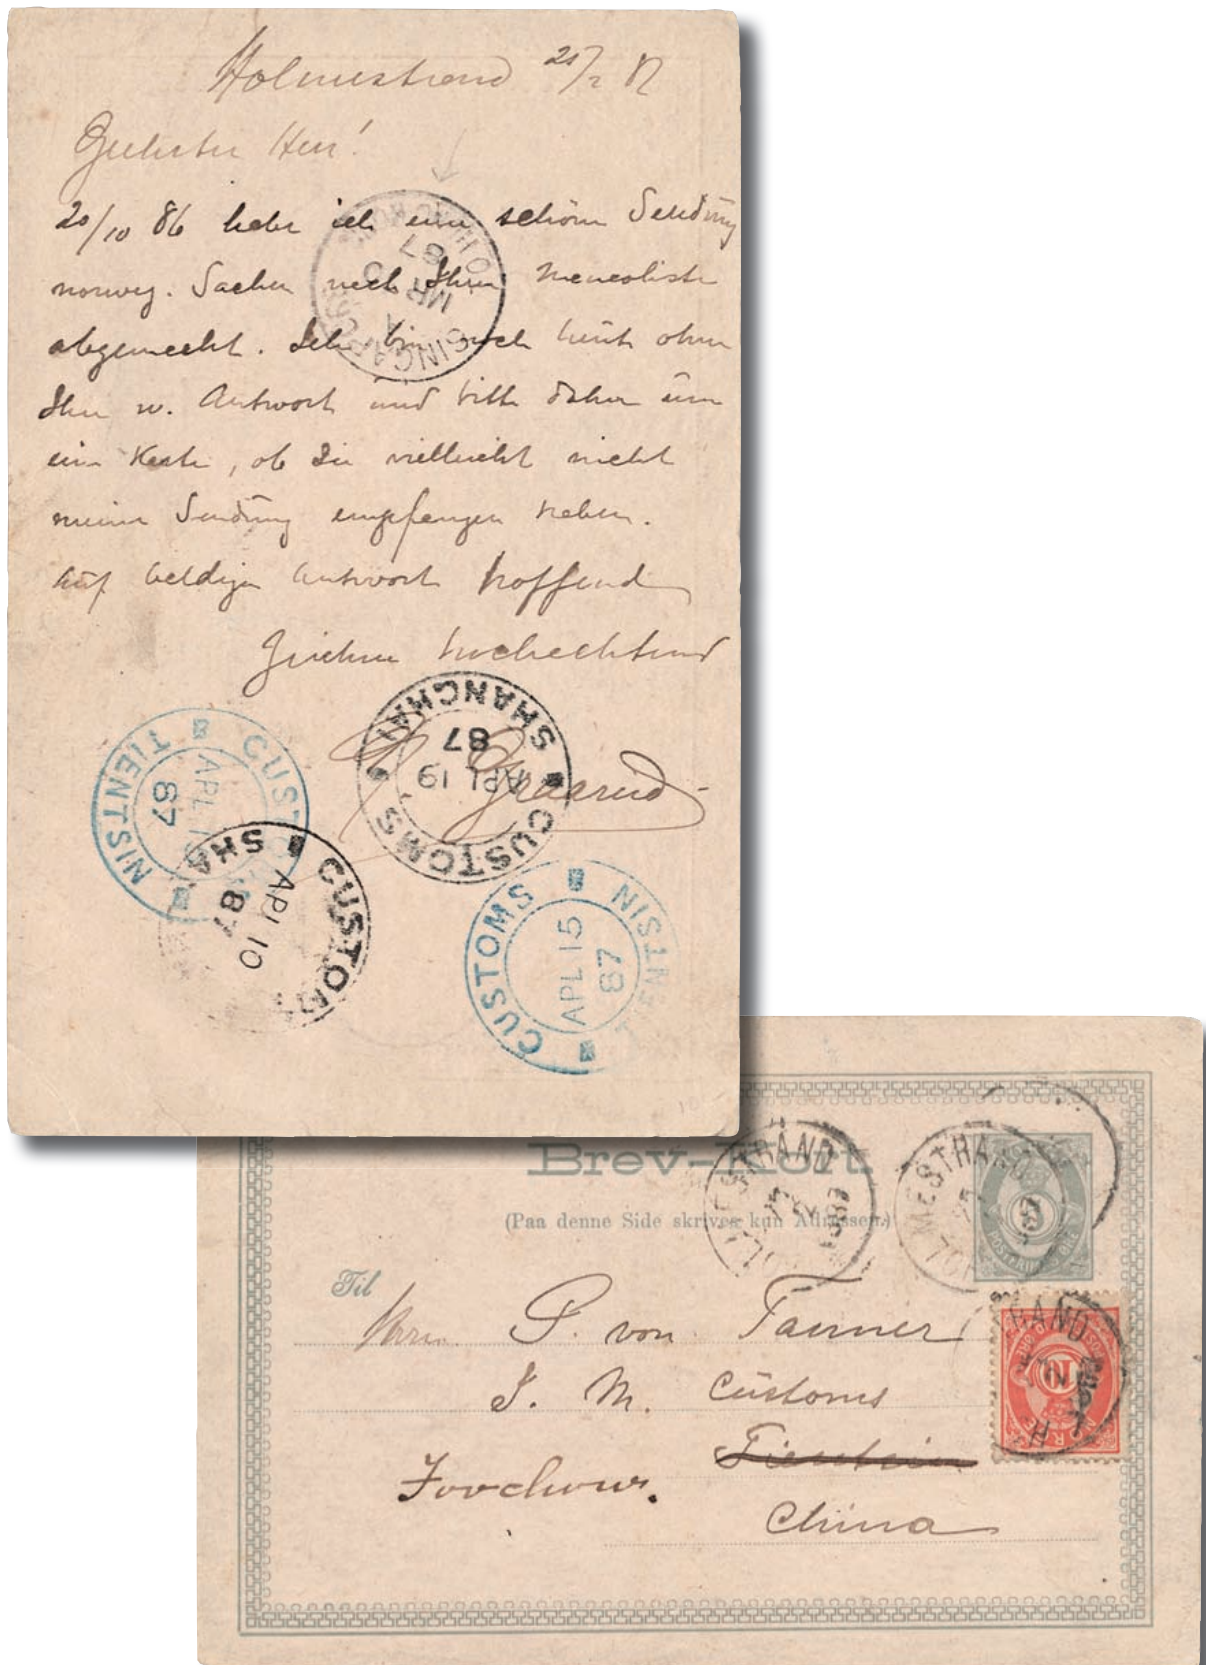 Holmestrand 21/2 87
Geehrter Herr!
20/10 86 habe ich eine schöne Sendung
norweg. Sachen nach Ihrer Mancoliste
abgemacht. Ich bin noch heute ohne
Ihre w. Antwort und bitte daher um
eine Karte, ob Sie vielleicht nicht
meine Sendung empfangen haben.
Auf baldige Antwort hoffend
Zeichne hochachtend
SINGAPORE
A
MR
87
SHANGHAI CUSTOMS
APL 19
87
CUSTOMS TIENTSIN
APL
87
CUSTOM
SHA
APL 10
87
CUSTOMS TIENTSIN
APL 15
87
Brev-Kort
(Paa denne Side skrives kun Adressen.)
Til
Herrn P. von Tanner
I. M. Customs
Tientsin
Foochow.
China
HOLMESTRAND
2
1887
HOLMESTRAND
POSTFRIM ØRE
NORGE
10
RAND